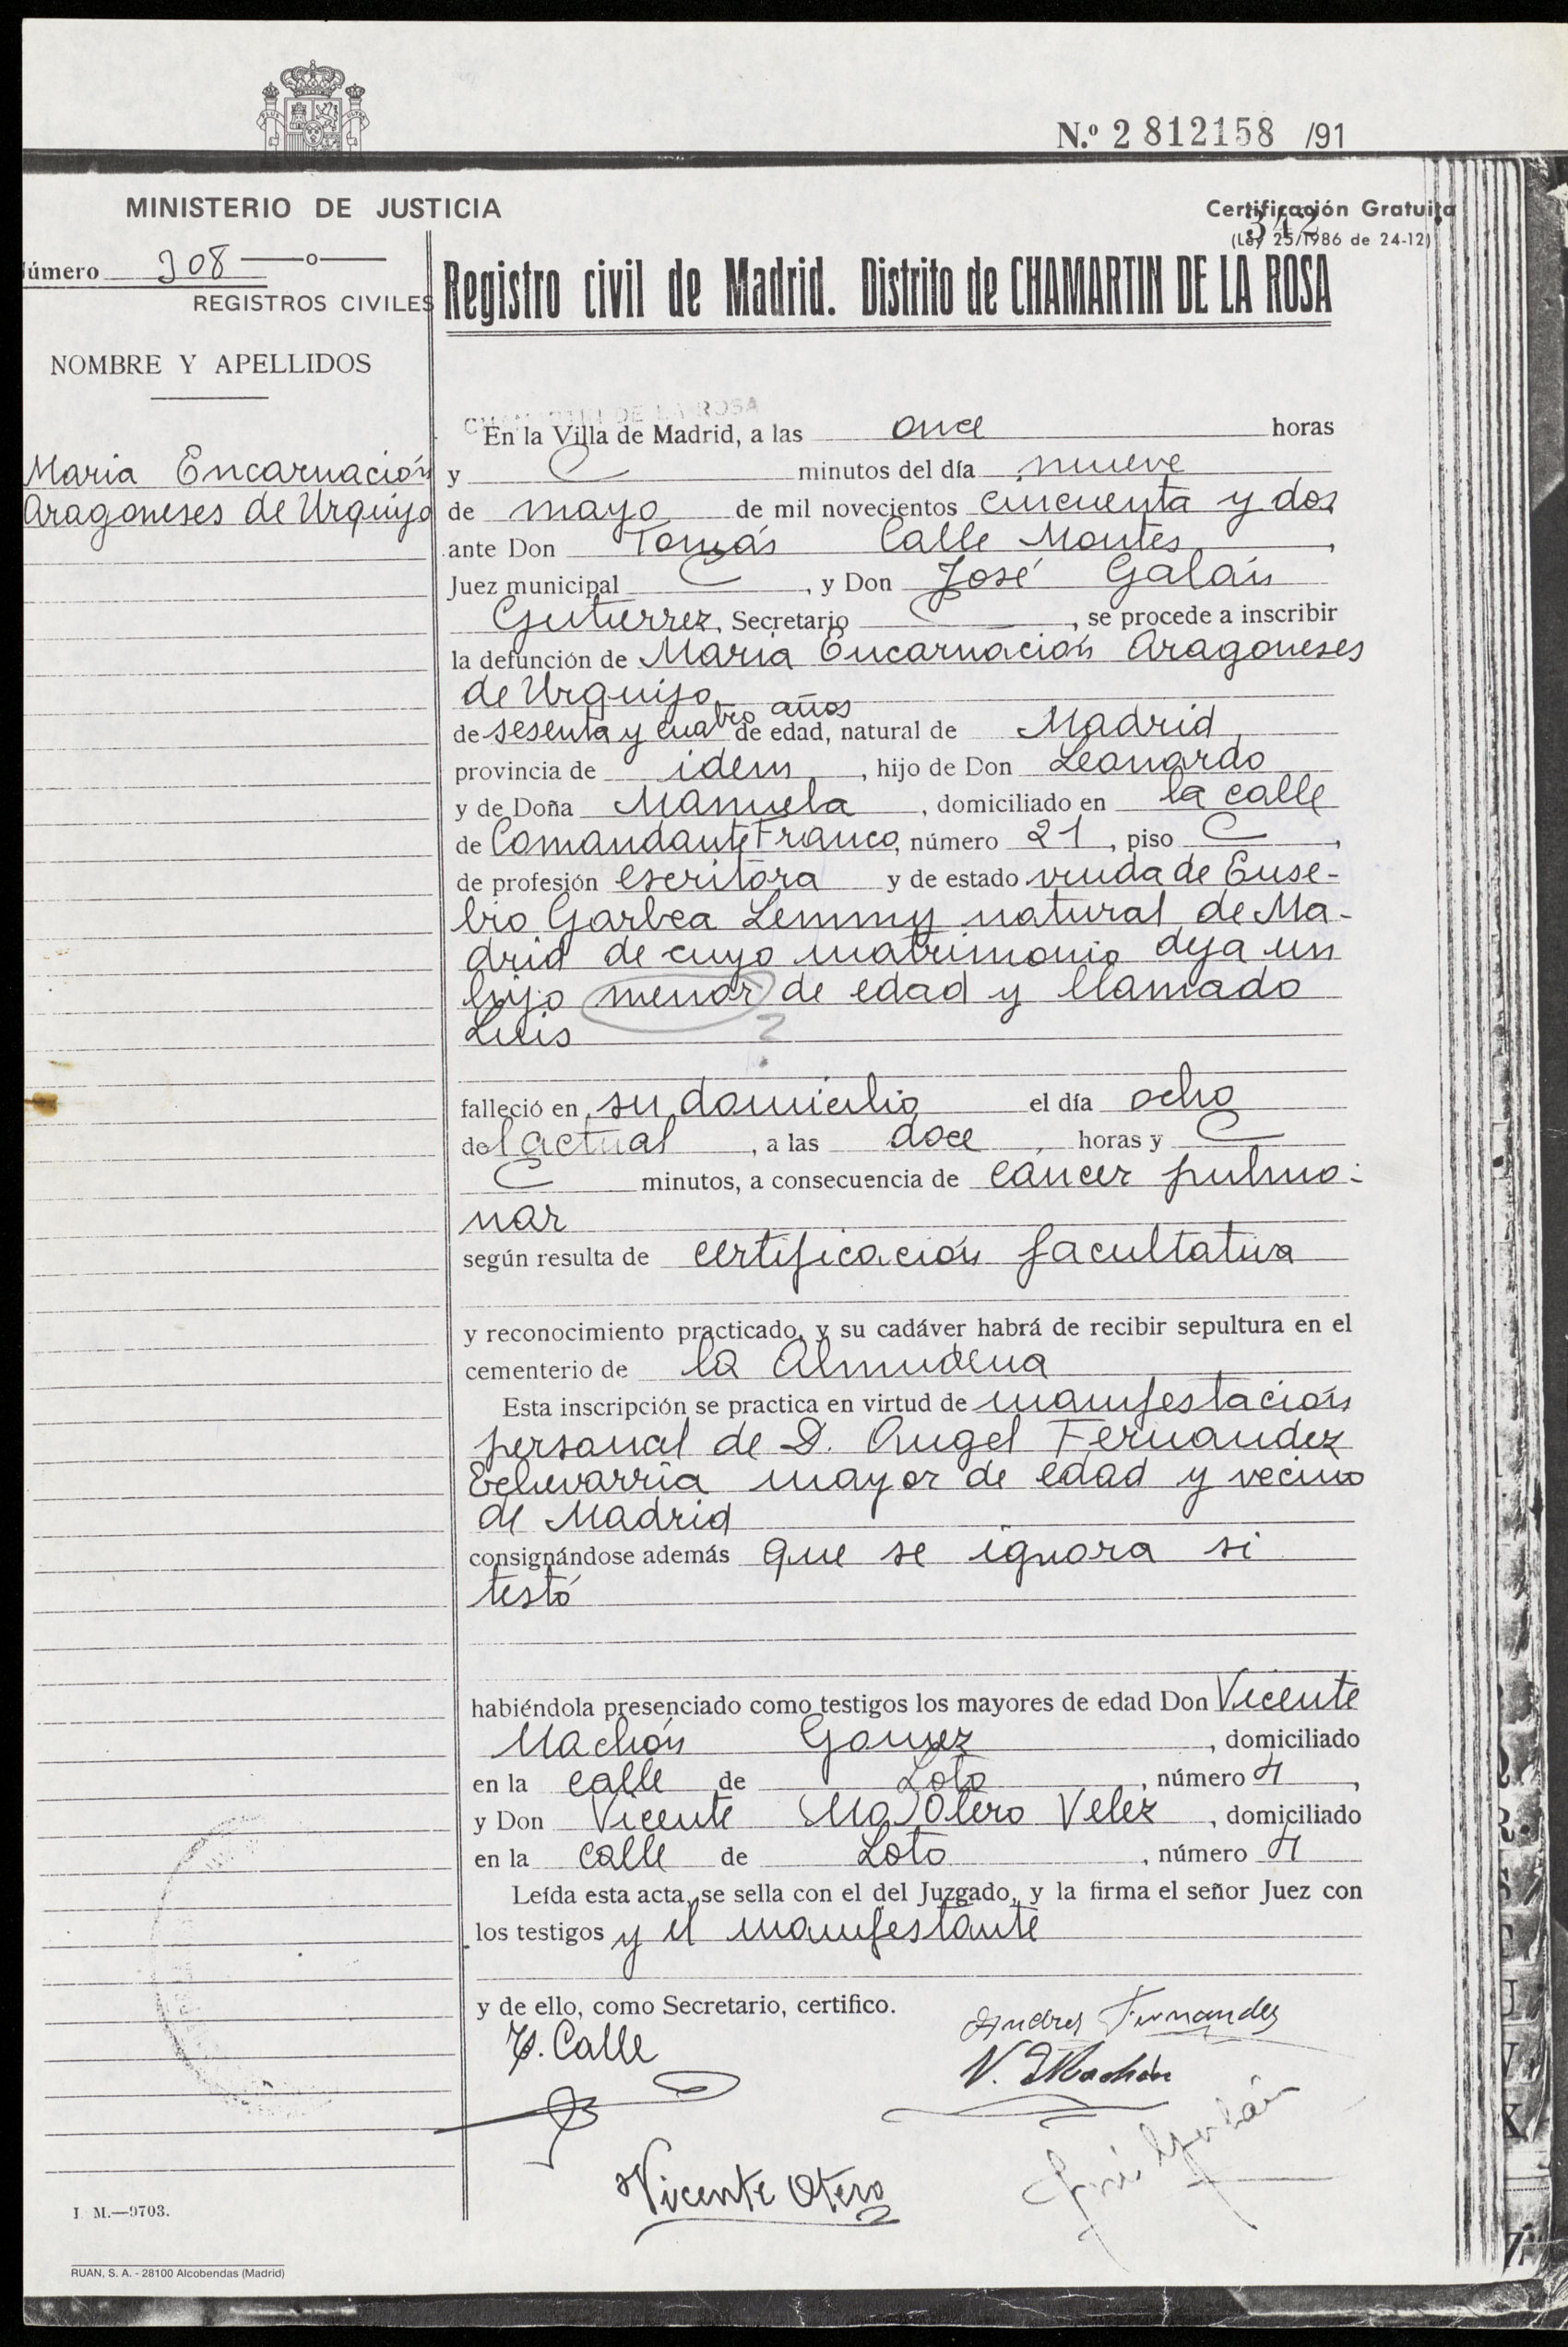 N.º 2 812158 /91
MINISTERIO DE JUSTICIA
Certificación Gratuita
342
(Ley 25/1986 de 24-12)
úmero 308
REGISTROS CIVILES
Registro civil de Madrid. Distrito de CHAMARTIN DE LA ROSA
NOMBRE Y APELLIDOS
Maria Encarnación
Aragoneses de Urquijo
CHAMARTIN DE LA ROSA
En la Villa de Madrid, a las once horas
y minutos del día nueve
de mayo de mil novecientos cincuenta y dos
ante Don Tomás Calle Montes,
Juez municipal , y Don José Galán
Gutierrez, Secretario , se procede a inscribir
la defunción de Maria Encarnación Aragoneses
de Urquijo
de sesenta y cuatro años de edad, natural de Madrid,
provincia de idem, hijo de Don Leonardo
y de Doña Manuela, domiciliado en la calle
de Comandante Franco, número 21, piso ,
de profesión escritora y de estado viuda de Euse-
bio Gorbea Lemmy natural de Ma-
drid de cuyo matrimonio deja un
hijo menor de edad y llamado
Luis
?
falleció en su domicilio el día ocho
del actual, a las doce horas y
minutos, a consecuencia de cáncer pulmo-
nar
según resulta de certificación facultativa
y reconocimiento practicado, y su cadáver habrá de recibir sepultura en el
cementerio de la Almudena
Esta inscripción se practica en virtud de manifestación
personal de D. Angel Fernandez
Echevarria mayor de edad y vecino
de Madrid
consignándose además que se ignora si
testó
habiéndola presenciado como testigos los mayores de edad Don Vicente
Machón Gomez, domiciliado
en la calle de Loto, número 4,
y Don Vicente Otero Velez, domiciliado
en la calle de Loto, número 4
Leída esta acta, se sella con el del Juzgado, y la firma el señor Juez con
los testigos y el manifestante
y de ello, como Secretario, certifico.
Andres Fernandez
T. Calle
V. Machón
José Galán
Vicente Otero
I. M.—9703.
RUAN, S. A. - 28100 Alcobendas (Madrid)